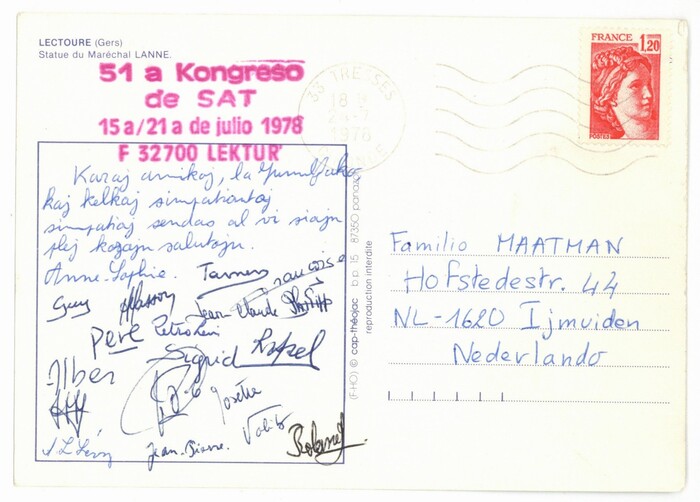 LECTOURE (Gers)
Statue du Maréchal LANNE.
51 a Kongreso
de SAT
15 a/21 a de julio 1978
F 32700 LEKTUR'
FRANCE 1,20
POSTES
33 TRESSES
18 H
1978
Karaj amikoj, la
kaj kelkaj simpatiantoj
simpatiaj sendas al vi siajn
plej korajn salutojn.
Anne-Sophie. Françoise
Guy Masson Jean-Claude
Pere
Sigrid
Alber
Josette
Jean-Pierre.
(F-HO) © cap-théojac b.p. 15 87350 panazol
reproduction interdite
Familio MAATMAN
Hofstedestr. 44
NL-1620 Ijmuiden
Nederlando